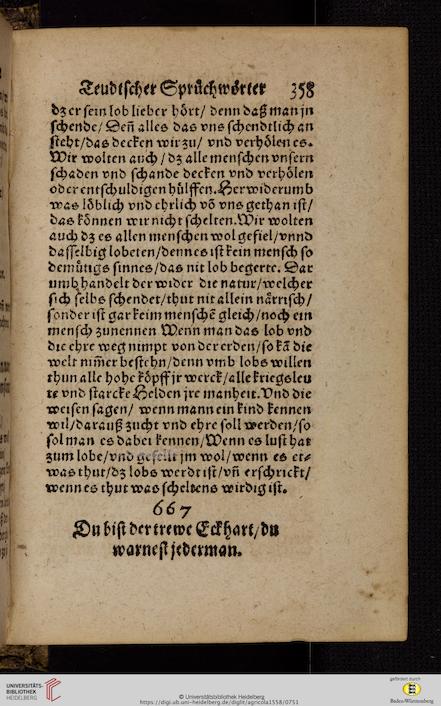 Teudtscher Sprüchwörter 358
dz er sein lob lieber hört/ denn daß man jn
schende/ Deñ alles das vns schendtlich an
steht/das decken wir zu/ vnd verhölen es.
Wir wolten auch/dz alle menschen vnsern
schaden vnd schande decken vnd verhölen
oder entschuldigen hülffen. Herwiderumb
was löblich vnd ehrlich võ vns gethan ist/
das können wir nicht schelten. Wir wolten
auch dz es allen menschen wol gefiel/vnnd
dasselbig lobeten/denn es ist kein mensch so
demütigs sinnes/das nit lob begerte. Dar
umb handelt der wider die natur/welcher
sich selbs schendet/thut nit allein närrisch/
sonder ist gar keim menschẽ gleich/noch ein
mensch zunennen Wenn man das lob vnd
die ehre weg nimpt von der erden/so kã die
welt nim̃er bestehn/denn vmb lobs willen
thun alle hohe köpff jr werck/alle kriegsleu
te vnd starcke Helden jre manheit. Vnd die
weisen sagen/ wenn mann ein kind kennen
wil/darauß zucht vnd ehre soll werden/so
sol man es dabei kennen/Wenn es lust hat
zum lobe/vnd gefellt jm wol/wenn es et=
was thut/dz lobs werdt ist/vñ erschrickt/
wenn es thut was scheltens wirdig ist.
667
Du bist der trewe Eckhart/du
warnest jederman.
UNIVERSITÄTS-
BIBLIOTHEK
HEIDELBERG
© Universitätsbibliothek Heidelberg
https://digi.ub.uni-heidelberg.de/diglit/agricola1558/0751
gefördert durch
Baden-Württemberg